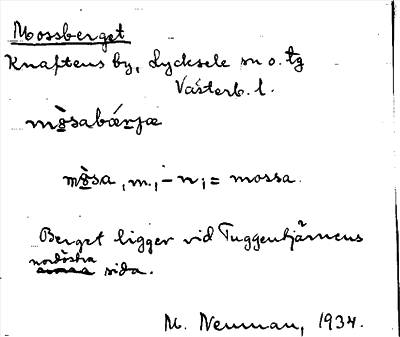 Mossberget
Knaftens by, Lycksele sn o. tg
Västerb. l.
mo̱̊̀sabárjæ
mo̱̊̀sa, m., -n, = mossa.
Berget ligger vid Tuggentjärnens
nordöstra
sida.
M. Neuman, 1934.